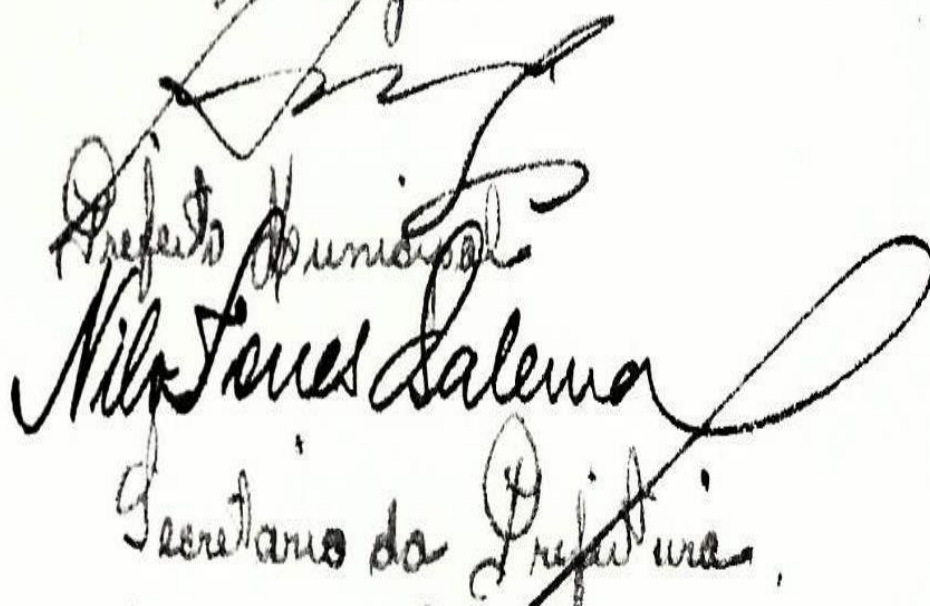 Prefeito Municipal
Nilo Torres Salema
Secretario da Prefeitura,